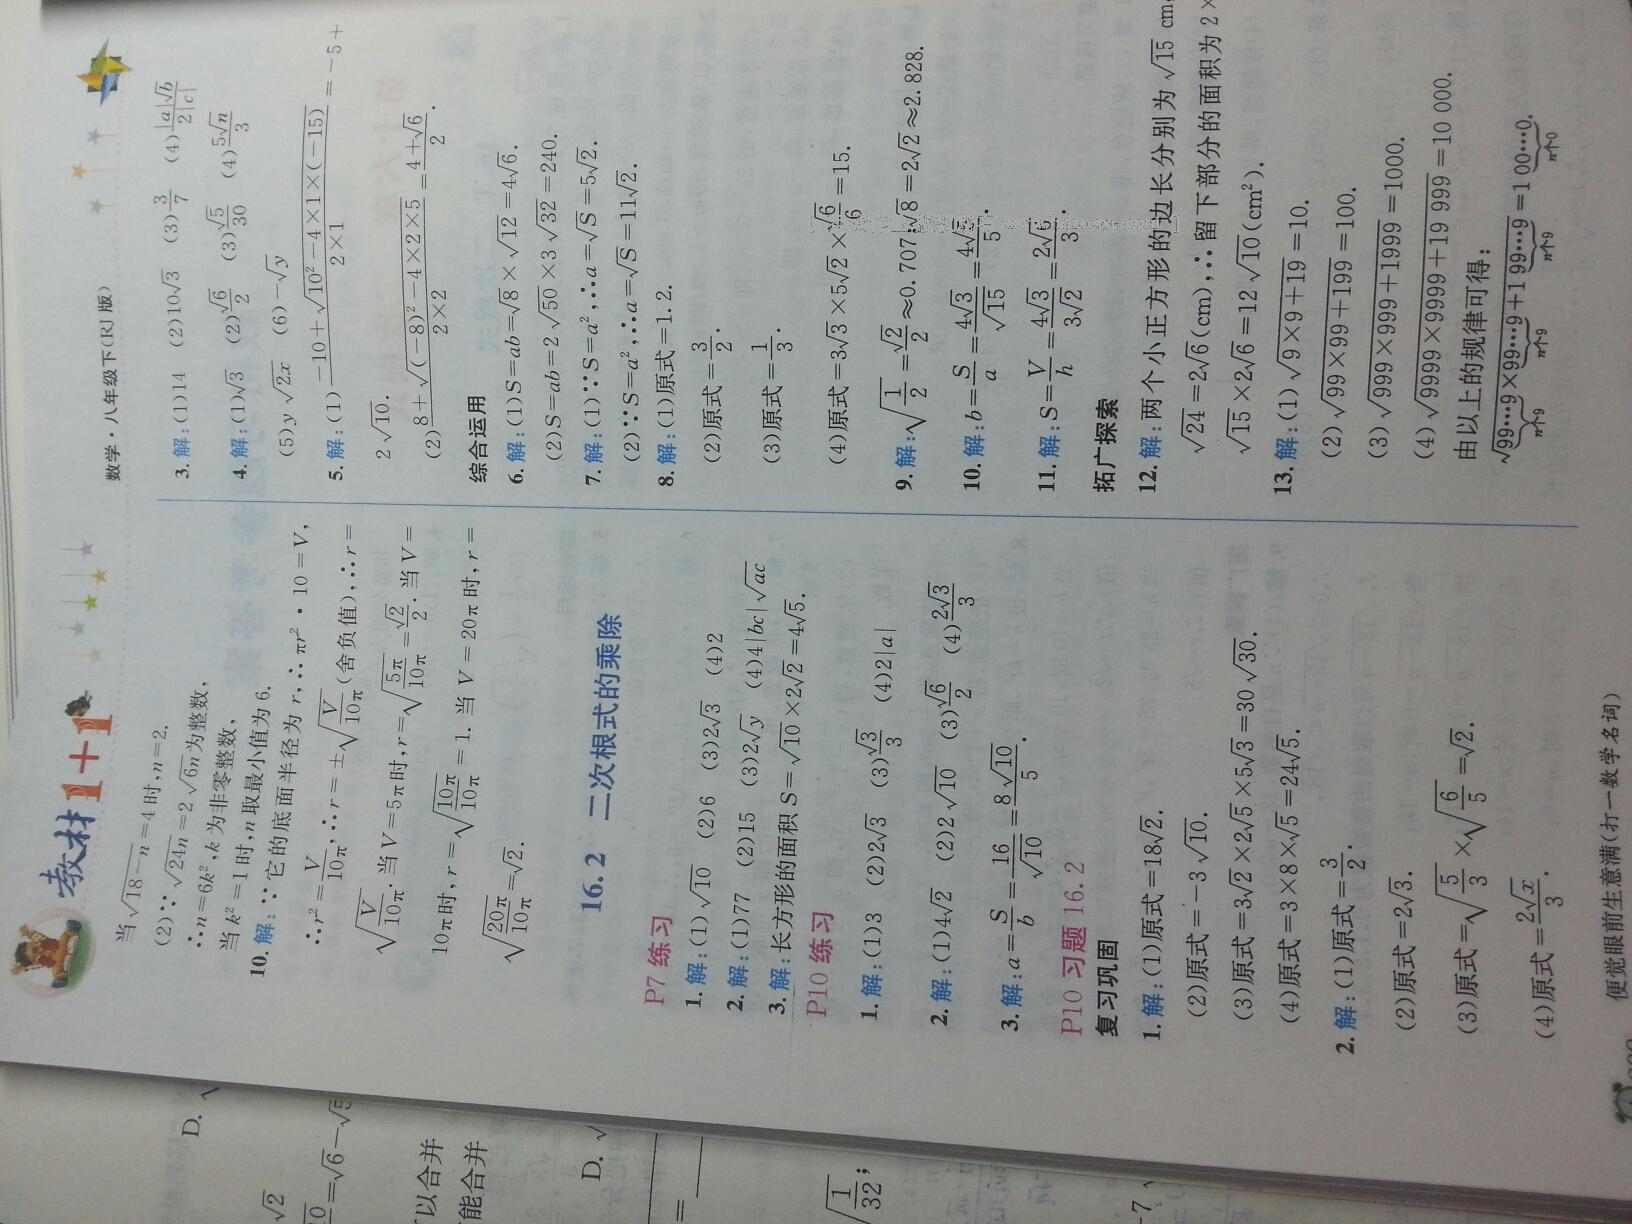 教材1+1
数学·八年级下(RJ版)
当√(18-n)=4时,n=2.
(2)∵√(24n)=2√(6n)为整数,
∴n=6k²,k为非零整数,
当k²=1时,n取最小值为6.
10.解:∵它的底面半径为r,∴πr²·10=V,
∴r²=V/(10π),∴r=±√(V/(10π))(舍负值),∴r=
√(V/(10π)).当V=5π时,r=√(5π/(10π))=√2/2.当V=
10π时,r=√(10π/(10π))=1.当V=20π时,r=
√(20π/(10π))=√2.
16.2 二次根式的乘除
P7练习
1.解:(1)√10 (2)6 (3)2√3 (4)2
2.解:(1)77 (2)15 (3)2√y (4)4|bc|√(ac)
3.解:长方形的面积S=√10×2√2=4√5.
P10练习
1.解:(1)3 (2)2√3 (3)√3/3 (4)2|a|
2.解:(1)4√2 (2)2√10 (3)√6/2 (4)2√3/3
3.解:a=S/b=16/√10=8√10/5.
P10习题16.2
复习巩固
1.解:(1)原式=18√2.
(2)原式=-3√10.
(3)原式=3√2×2√5×5√3=30√30.
(4)原式=3×8×√5=24√5.
2.解:(1)原式=3/2.
(2)原式=2√3.
(3)原式=√(5/3)×√(6/5)=√2.
(4)原式=2√x/3.
3.解:(1)14 (2)10√3 (3)3/7 (4)|a|√b/(2|c|)
4.解:(1)√3 (2)√6/2 (3)√5/30 (4)5√n/3
(5)y√(2x) (6)-√y
5.解:(1)(-10+√(10²-4×1×(-15)))/(2×1)=-5+
2√10.
(2)(8+√((-8)²-4×2×5))/(2×2)=(4+√6)/2.
综合运用
6.解:(1)S=ab=√8×√12=4√6.
(2)S=ab=2√50×3√32=240.
7.解:(1)∵S=a²,∴a=√S=5√2.
(2)∵S=a²,∴a=√S=11√2.
8.解:(1)原式=1.2.
(2)原式=3/2.
(3)原式=1/3.
(4)原式=3√3×5√2×√6/6=15.
9.解:√(1/2)=√2/2≈0.707;√8=2√2≈2.828.
10.解:b=S/a=4√3/√15=4√5/5.
11.解:S=V/h=4√3/(3√2)=2√6/3.
拓广探索
12.解:两个小正方形的边长分别为√15 cm
√24=2√6(cm),∴留下部分的面积为2×
√15×2√6=12√10(cm²).
13.解:(1)√(9×9+19)=10.
(2)√(99×99+199)=100.
(3)√(999×999+1999)=1000.
(4)√(9999×9999+19 999)=10 000.
由以上的规律可得:
√(99…9×99…9+1 99…9)=1 00…0.
n个9 n个9 n个9 n个0
便觉眼前生意满(打一数学名词)
D.
√2
=√6-√5
以合并
能合并
D.
=
√(1/32);
-7